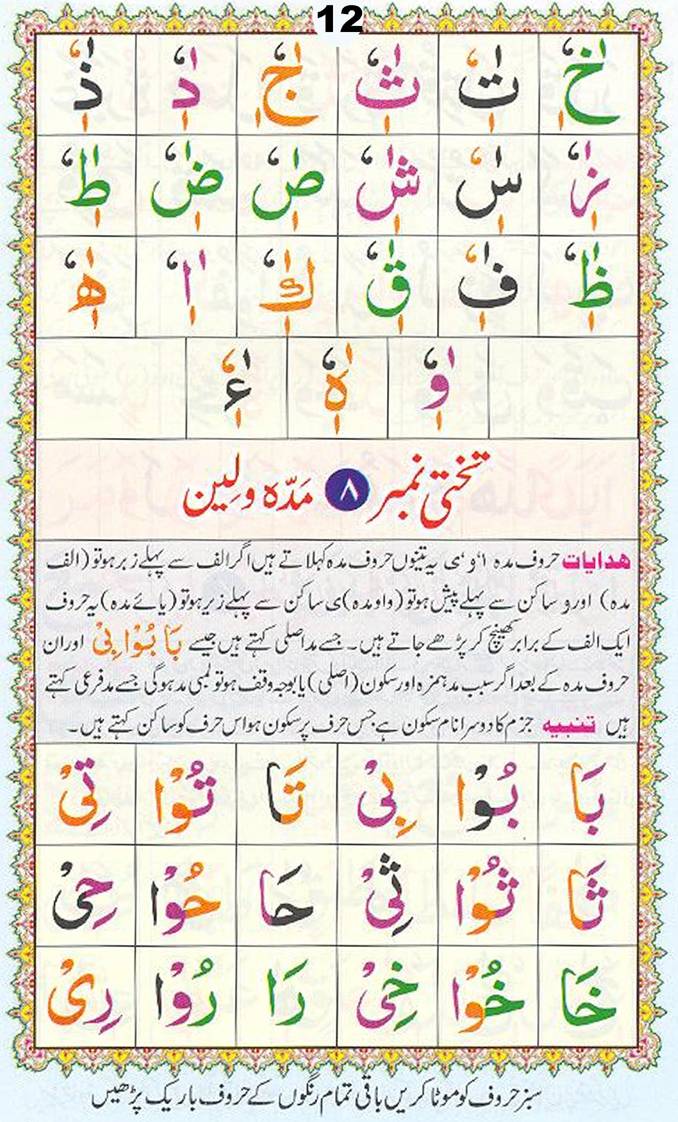 12
خٰٖٗ تٰٖٗ ثٰٖٗ جٰٖٗ دٰٖٗ ذٰٖٗ
زٰٖٗ سٰٖٗ شٰٖٗ صٰٖٗ ضٰٖٗ طٰٖٗ
ظٰٖٗ فٰٖٗ قٰٖٗ كٰٖٗ اٰٖٗ ھٰٖٗ
وٰٖٗ ہٰٖٗ ءٰٖٗ
تختی نمبر ۸ مَدّہ و لِین
ھدایات حروف مدہ ا‘و‘ی یہ تینوں حروف مدہ کہلاتے ہیں اگر الف سے پہلے زبر ہو تو (الف
مدہ) اور و ساکن سے پہلے پیش ہو تو (واو مدہ) ی ساکن سے پہلے زیر ہو تو (یائے مدہ) یہ حروف
ایک الف کے برابر کھینچ کر پڑھے جاتے ہیں۔ جسے مد اصلی کہتے ہیں جیسے بَا بُوْا بِیْ اور ان
حروف مدہ کے بعد اگر سبب مد ہمزہ اور سکون (اصلی) یا بوجہ وقف ہو تو لمبی مد ہو گی جسے مد فرعی کہتے
ہیں تنبیہ جزم کا دوسرا نام سکون ہے جس حرف پر سکون ہو اس حرف کو ساکن کہتے ہیں۔
بَا بُوْا بِیْ تَا تُوْا تِیْ
ثَا ثُوْا ثِیْ حَا حُوْا حِیْ
خَا خُوْا خِیْ رَا رُوْا رِیْ
سبز حروف کو موٹا کریں باقی تمام رنگوں کے حروف باریک پڑھیں